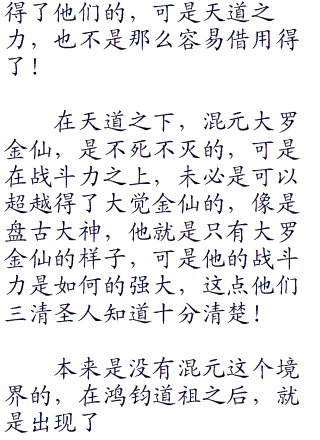 得了他们的，可是天道之
力，也不是那么容易借用得
了！
在天道之下，混元大罗
金仙，是不死不灭的，可是
在战斗力之上，未必是可以
超越得了大觉金仙的，像是
盘古大神，他就是只有大罗
金仙的样子，可是他的战斗
力是如何的强大，这点他们
三清圣人知道十分清楚！
本来是没有混元这个境
界的，在鸿钧道祖之后，就
是出现了